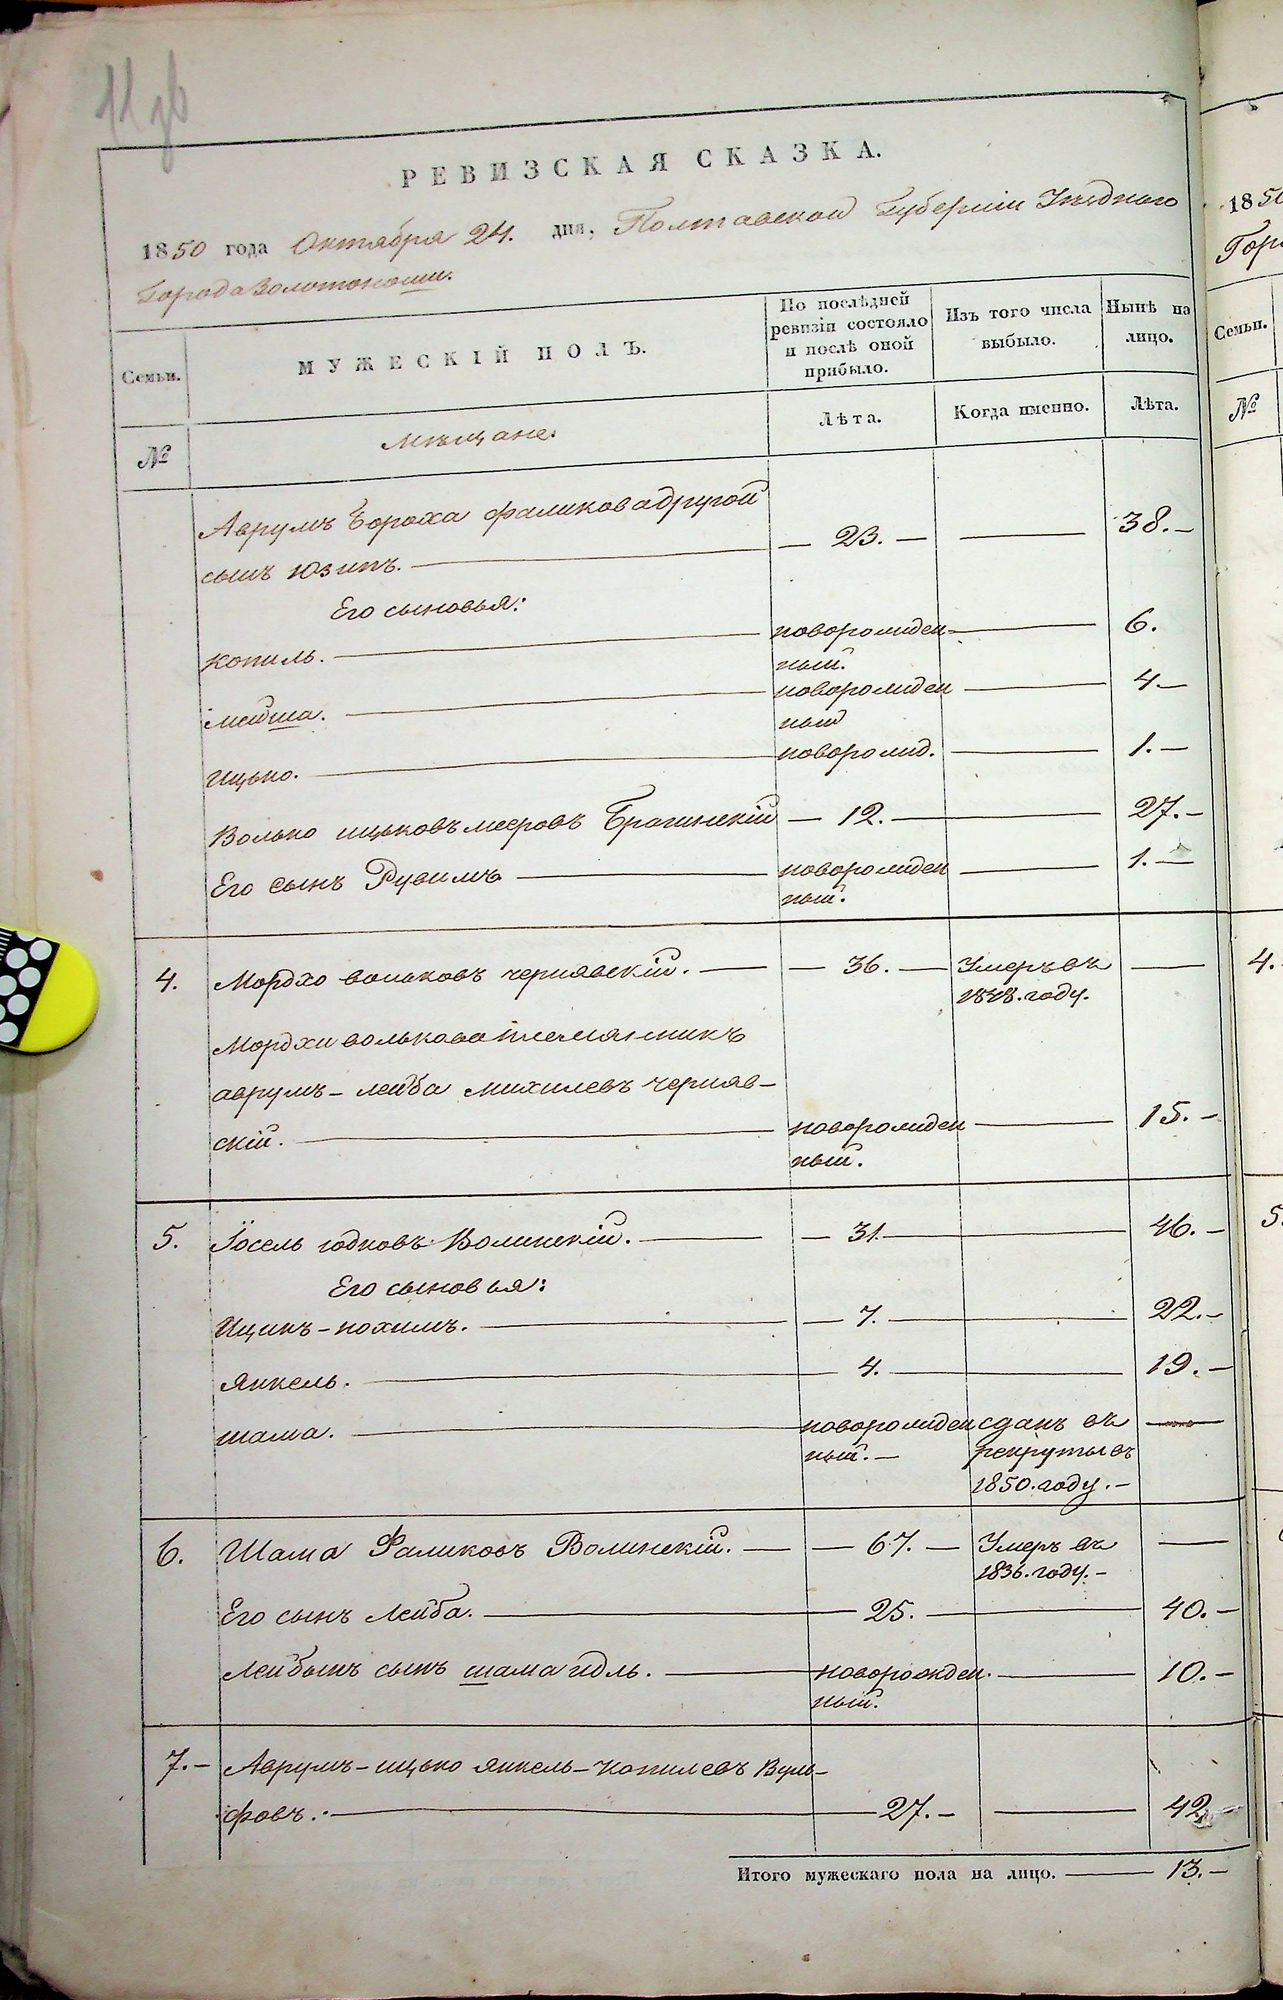 11 зв
РЕВИЗСКАЯ СКАЗКА.
1850 года Октября 24. дня, Полтавской Губерніи Уѣзднаго
Города Золотоноши.
Семьи. МУЖЕСКІЙ ПОЛЪ. По послѣдней ревизіи состояло и послѣ оной прибыло. Изъ того числа выбыло. Нынѣ на лицо.
№ Мѣщане. Лѣта. Когда именно. Лѣта.
Аврумъ Бороха Фаликова другой
сынъ Юзипъ. — 23. — — 38. —
Его сыновья:
Копиль. — новорожден- — 6.
ный.
Мейша. — новорожден — 4 —
ный
Ицько. — новорожд. — 1. —
Волько Ицьковъ Мееровъ Брагинскій — 12. — 27. —
Его сынъ Рувимъ — новорожден — 1. —
ный.
4. Мордхо Вольковъ Чернявскій. — — 36. — Умеръ въ —
1848. году.
Мордхи Волькова племянникъ
Аврумъ-Лейба Михилевъ Черняв-
скій. — новорожден — 15. —
ный.
5. Іосель Годковъ Волинскій. — — 31. — 46. —
Его сыновья:
Ицикъ-Нохимъ. — — 7. — 22. —
Янкель. — 4. — 19. —
Шама. — новорожден сданъ въ —
ный. — рекруты въ
1850. году. —
6. Шама Фаликовъ Волинскій. — — 67. — Умеръ въ —
1836. году. —
Его сынъ Лейба. — 25. — 40. —
Лейбынъ сынъ Шама Идль. — новорожден. — 10. —
ный.
7. — Аврумъ-Ицько Янкель-Копилевъ Вуль-
фовъ. — 27. — — 42
Итого мужескаго пола на лицо. — 13. —
1850
Гор
Семьи.
№
4.
5.